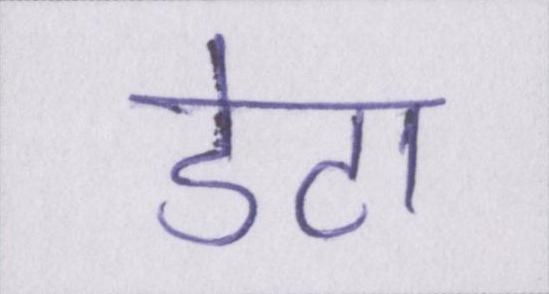 डेटा